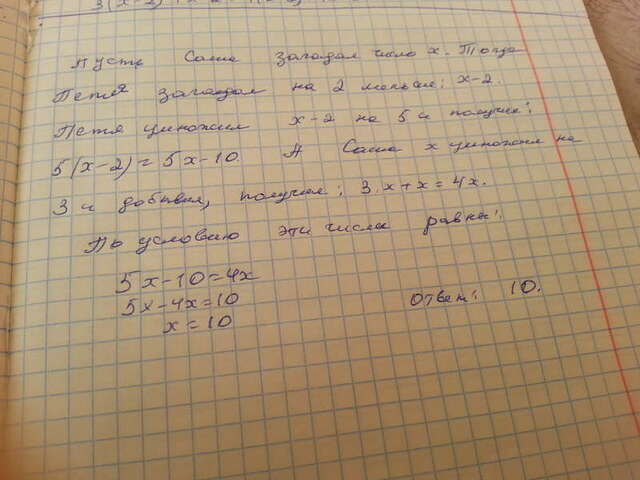 Пусть Саша загадал число x. Тогда
Петя загадал на 2 меньше: x-2.
Петя умножил x-2 на 5 и получил:
5(x-2)=5x-10. А Саша x умножил на
3 и добавил, получил: 3·x+x=4x.
По условию эти числа равны:
5x-10=4x
5x-4x=10
x=10
Ответ: 10.